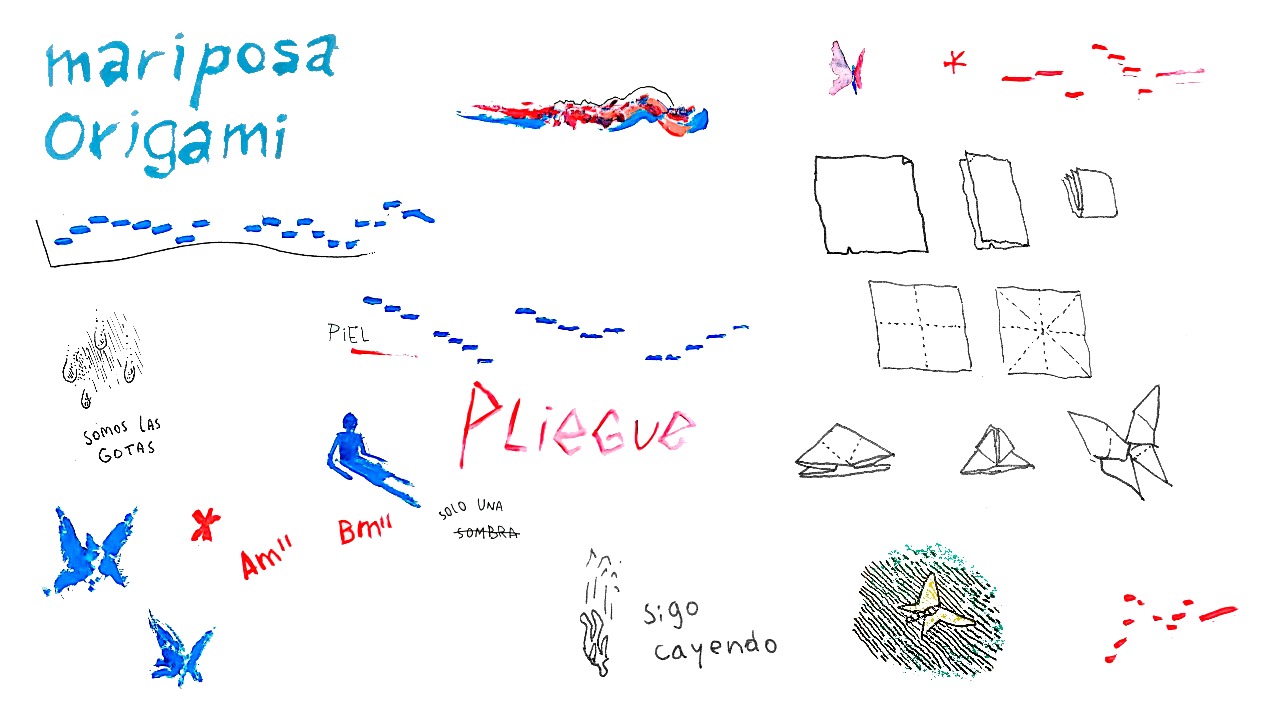 mariposa
Origami
PiEL
PLiEGUE
SOMOS LAS
GOTAS
SOLO UNA
SOMBRA
Am"
Bm"
sigo
cayendo